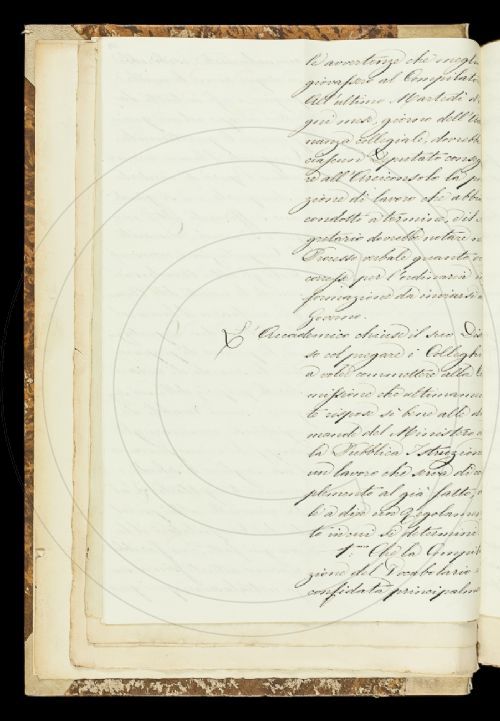 le avvertenze che meglio
giovassero al Compilato
All'ultimo Martedì d'
gni mese, giorno dell'
nanza collegiale, dovrebb
ciascun Deputato conseg
re all'Arciconsolo la po
zione di lavoro che abbi
condotto a termine, e il s
gretario dovrebbe notare n
Processo verbale quanto
per l'ordinaria
formazione da inviarsi a
Governo.
L'Accademico chiuse il suo Dis
so col pregare i Colleghi
a voler commettere alla
missione che ultimamen
te rispose sì bene alle do
mande del Ministero
la Pubblica Istruzion
un lavoro che serva di co
plemento al già fatto,
le a dire un Regolamen
to in cui si determini
1.° Che la Compila
zione del Vocabolario
confidata principalme